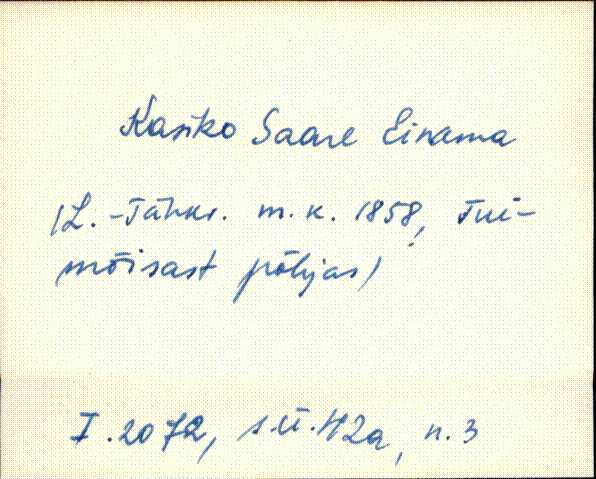 Kasiko Saare Einama
(L.-Tähkv. m. k. 1858, Tui-
mõisast põhjas)
I.2072, s.ü. 112a, n. 3